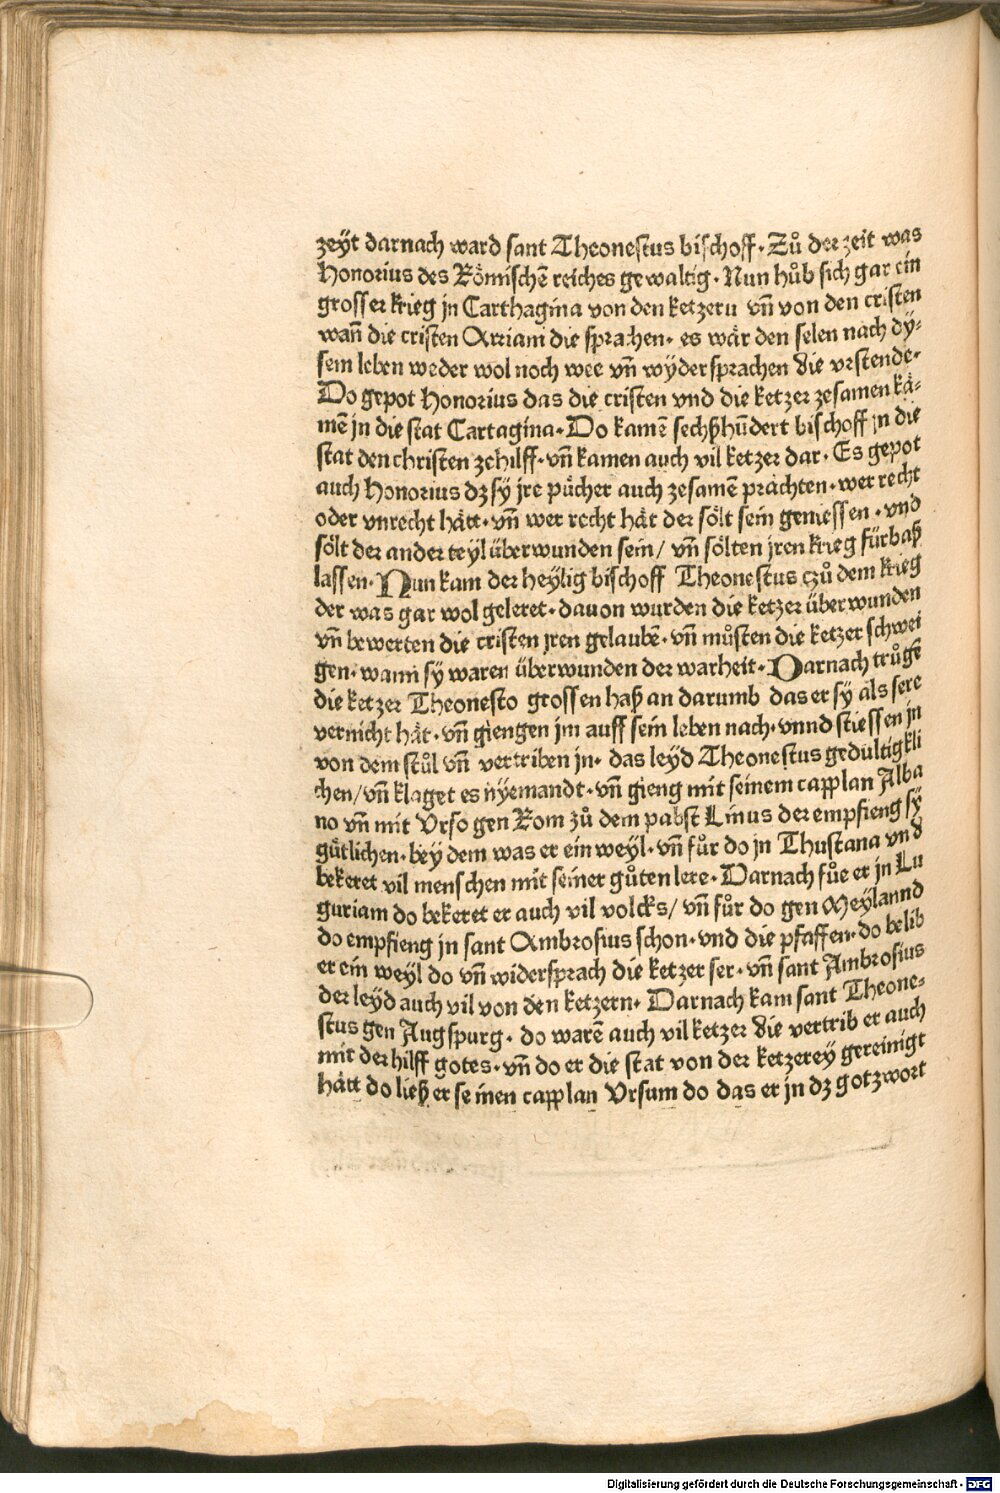 zeyt darnach ward sant Theonestus bischoff · Zů der zeit was
Honorius des Römischē reiches gewaltig · Nun hůb sich gar ein
grosser krieg jn Carthagina von den ketzern vñ von den cristen
wañ die cristen Arriani die sprachen · es wär den selen nach dy⸗
sem leben weder wol noch wee vñ wyder sprachen die vrstende ·
Do gepot Honorius das die cristen vnd die ketzer zesamen kä⸗
mē jn die stat Cartagina · Do kamē sechßhūdert bischoff jn die
stat den christen zehilff · vñ kamen auch vil ketzer dar · Es gepot
auch Honorius dz sÿ jre pücher auch zesamē prächten · wer recht
oder vnrecht hätt · vñ wer recht hät der sölt sein geniessen · vnd
sölt der ander teyl überwunden sein / vñ sölten jren krieg fürbaß
lassen · Nun kam der heylig bischoff Theonestus czů dem krieg
der was gar wol geleret · dauon wurden die ketzer überwunden
vñ bewerten die cristen jren gelaubē · vñ můsten die ketzer schwei
gen · wann sÿ waren überwunden der warheit · Darnach trůgē
die ketzer Theonesto grossen haß an darumb das er sÿ als sere
vernicht hät · vñ giengen jm auff sein leben nach · vnnd stiessen jn
von dem stůl vñ vertriben jn · das leyd Theonestus gedultigkli
chen / vñ klaget es nyemandt · vñ gieng mit seinem capplan Alba
no vñ mit Vrso gen Rom zů dem pabst Linus der empfieng sÿ
gütlichen · bey dem was er ein weyl · vñ fůr do jn Thustana vnd
bekeret vil menschen mit seiner gůten lere · Darnach fůe er jn Lu
guriam do bekeret er auch vil volcks / vñ fůr do gen Meylannd
do empfieng jn sant Ambrosius schon · vnd die pfaffen · do belib
er ein weyl do vñ widersprach die ketzer ser · vñ sant Ambrosius
der leyd auch vil von den ketzern · Darnach kam sant Theone⸗
stus gen Augspurg · do warē auch vil ketzer die vertrib er auch
mit der hilff gotes · vñ do er die stat von der ketzerey gereinigt
hätt do ließ er seinen capplan Vrsum do das er jn dz gotzwort
Digitalisierung gefördert durch die Deutsche Forschungsgemeinschaft - DFG